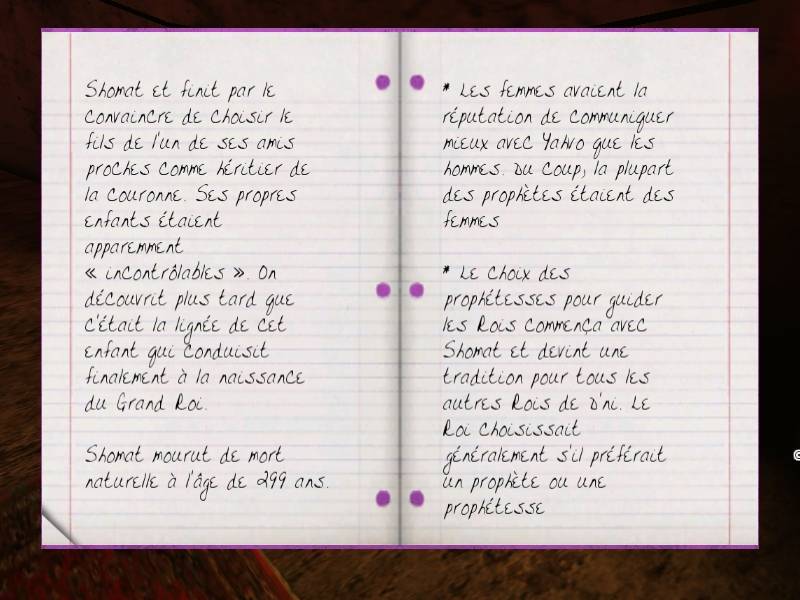 Shomat et finit par le
convaincre de choisir le
fils de l'un de ses amis
proches comme héritier de
la couronne. Ses propres
enfants étaient
apparemment
« incontrôlables ». On
découvrit plus tard que
c'était la lignée de cet
enfant qui conduisit
finalement à la naissance
du Grand Roi.
Shomat mourut de mort
naturelle à l'âge de 299 ans.
* Les femmes avaient la
réputation de communiquer
mieux avec Yahvo que les
hommes. Du coup, la plupart
des prophètes étaient des
femmes
* Le choix des
prophétesses pour guider
les Rois commença avec
Shomat et devint une
tradition pour tous les
autres Rois de D'ni. Le
Roi choisissait
généralement s'il préférait
un prophète ou une
prophétesse